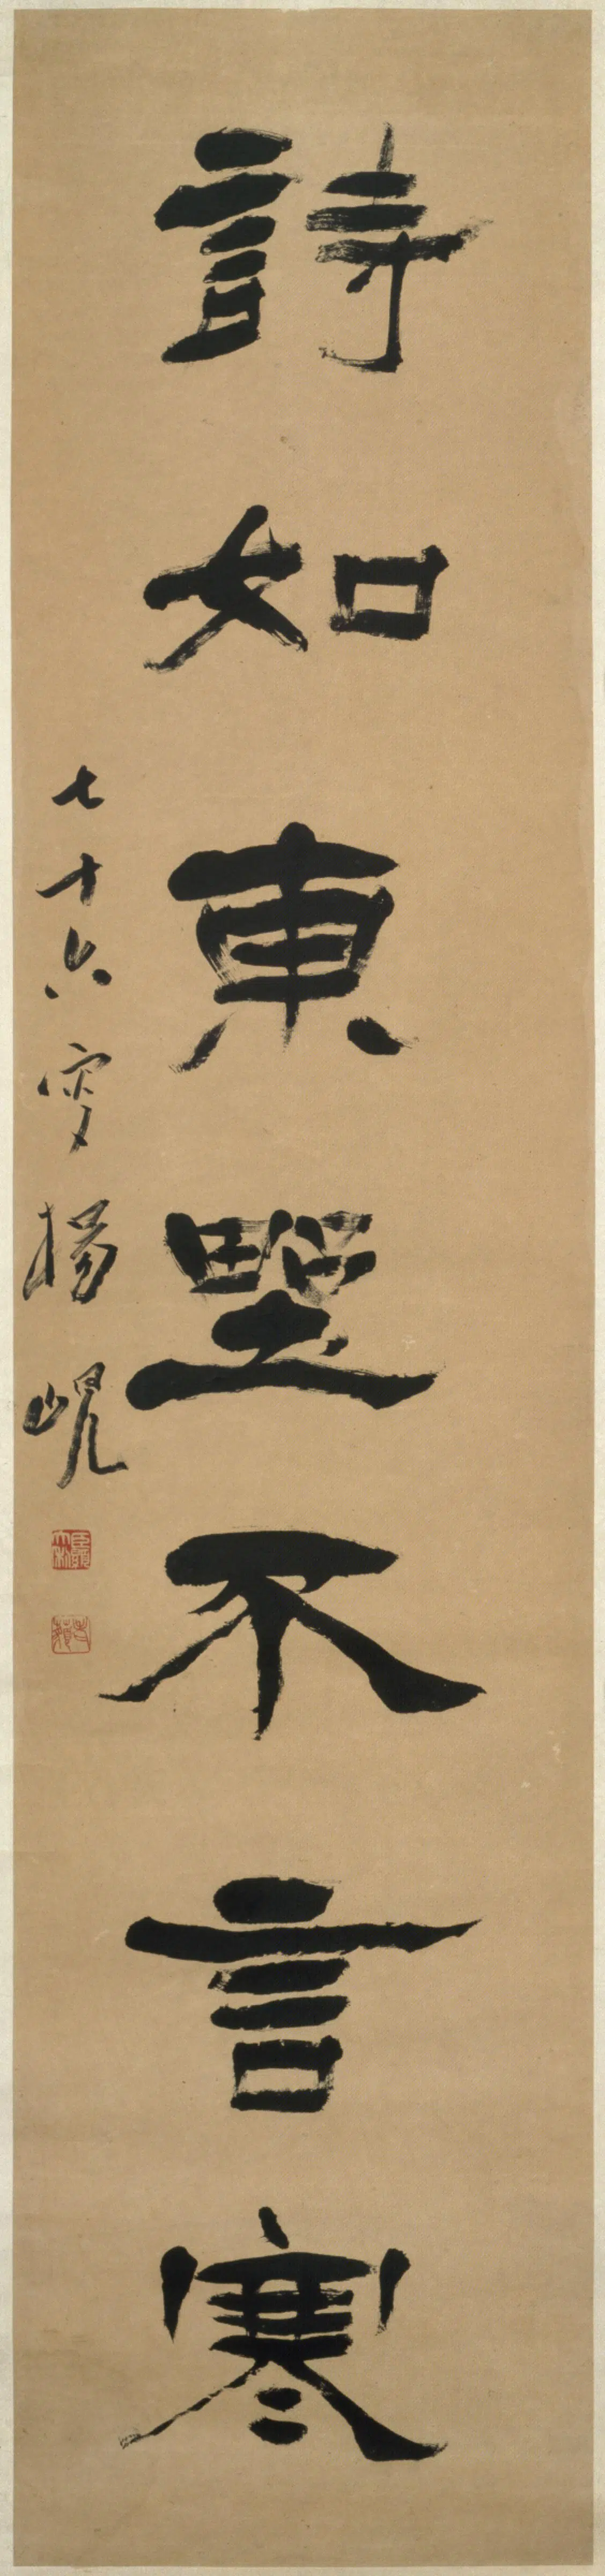 詩如東野不言寒
七十六叟楊峴